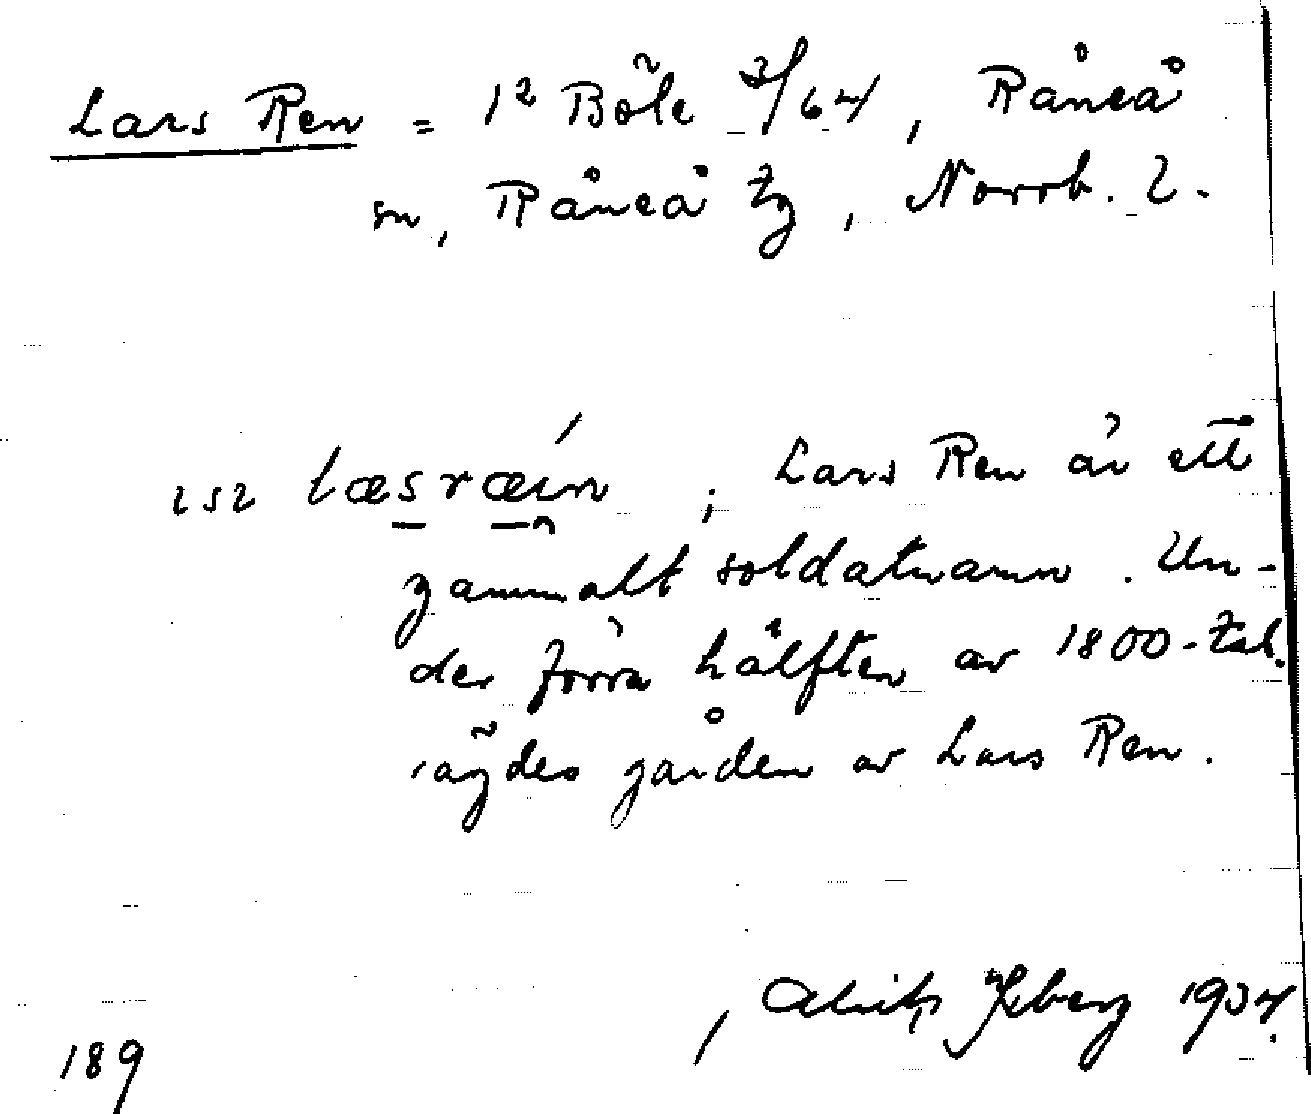 Lars Ren = 1² Böle 2/64, Råneå
sn, Råneå tg, Norrb. l.
læsræin; Lars Ren är ett
gammalt soldatnamn. Un-
der förra hälften av 1800-tal.
ägdes gården av Lars Ren.
1934.
189